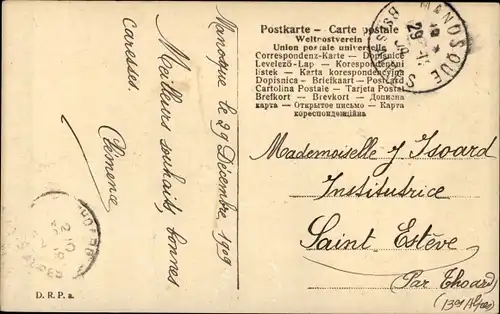 Manosque le 29 Décembre 1909
Meilleurs souhaits, bonnes
caresses.
Clémence
D. R. P. a.
Postkarte – Carte postale
Weltpostverein
Union postale universelle
Correspondenz-Karte – Dopisnice
Levelező-Lap – Korespondentní
lístek – Karta korespondencyjna
Dopisnica – Briefkaart – Postcard
Cartolina Postale – Tarjeta Postal
Brefkort – Brevkort – Дописна
карта – Открытое письмо – Карта
кореспонденційна
MANOSQUE
29
Mademoiselle J Isoard
Institutrice
Saint Estève
(Par Thoard)
(Bses Alpes)